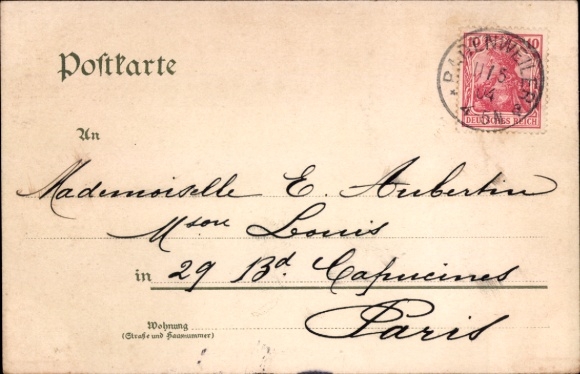 Postkarte
10 10
DEUTSCHES REICH
BADENWEILER
04
An
Mademoiselle E. Aubertin
Mson Louis
in 29 Bd. Capucines
Paris
Wohnung
(Straße und Hausnummer)